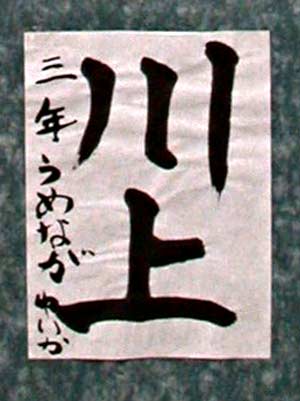 川上
三年うめながゆいか